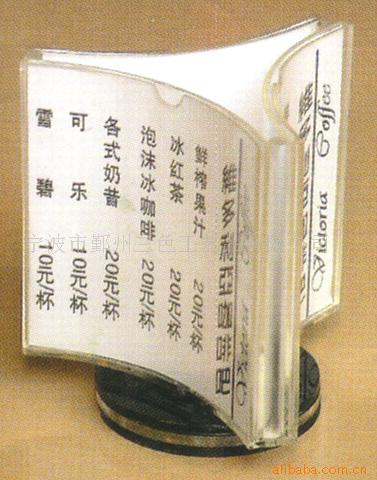 維多利亞咖啡吧
鲜榨果汁 20元/杯
冰红茶 20元/杯
泡沫冰咖啡 20元/杯
各式奶昔 20元/杯
可乐 10元/杯
雪碧 10元/杯
Victoria Coffee
宁波市鄞州三色工
alibaba.com.cn